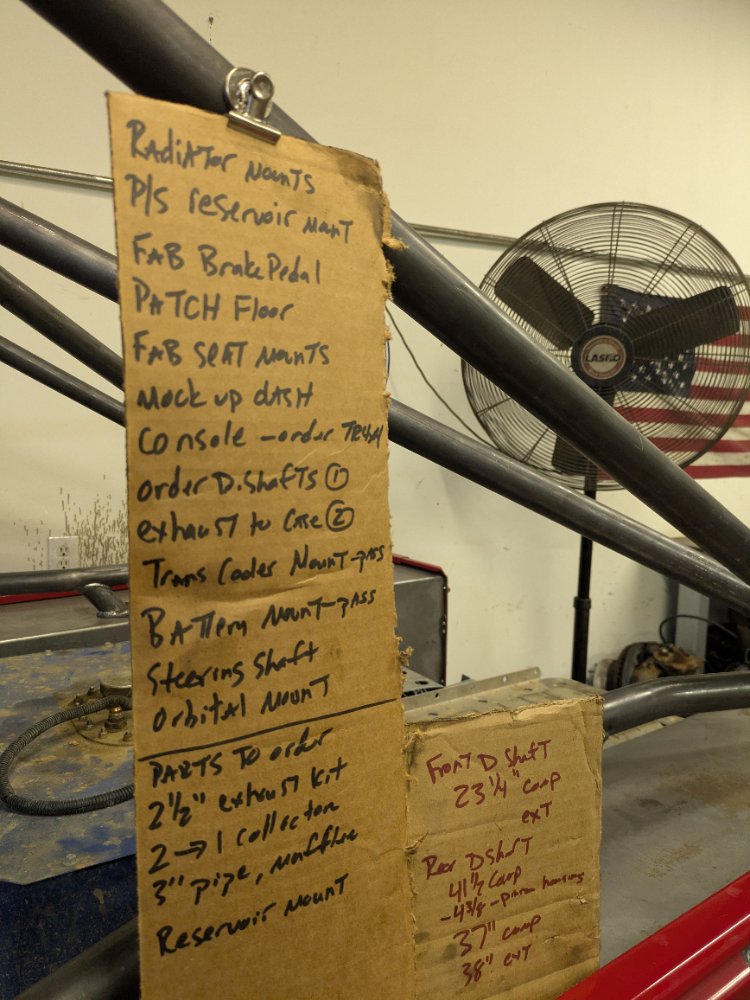 RADiATor MounTS
P/S reservoir MounT
FAB BrakePedal
PATCH Floor
FAB SEAT MounTS
Mock up dASH
Console - order
order D.ShafTs ①
exhaust to CASE ②
Trans Cooler MounT - pASS
BATTery MounT - pASS
Steering Shaft
Orbital MounT
PARTS To order
2 1/2" exhaust Kit
2 → 1 collector
3" pipe, muffler
Reservoir MounT
FronT D ShafT
23 1/4" comp
exT
Rear D ShafT
41 1/2 comp
- 4 3/8 - pinion housing
37" comp
38" exT
LASKO